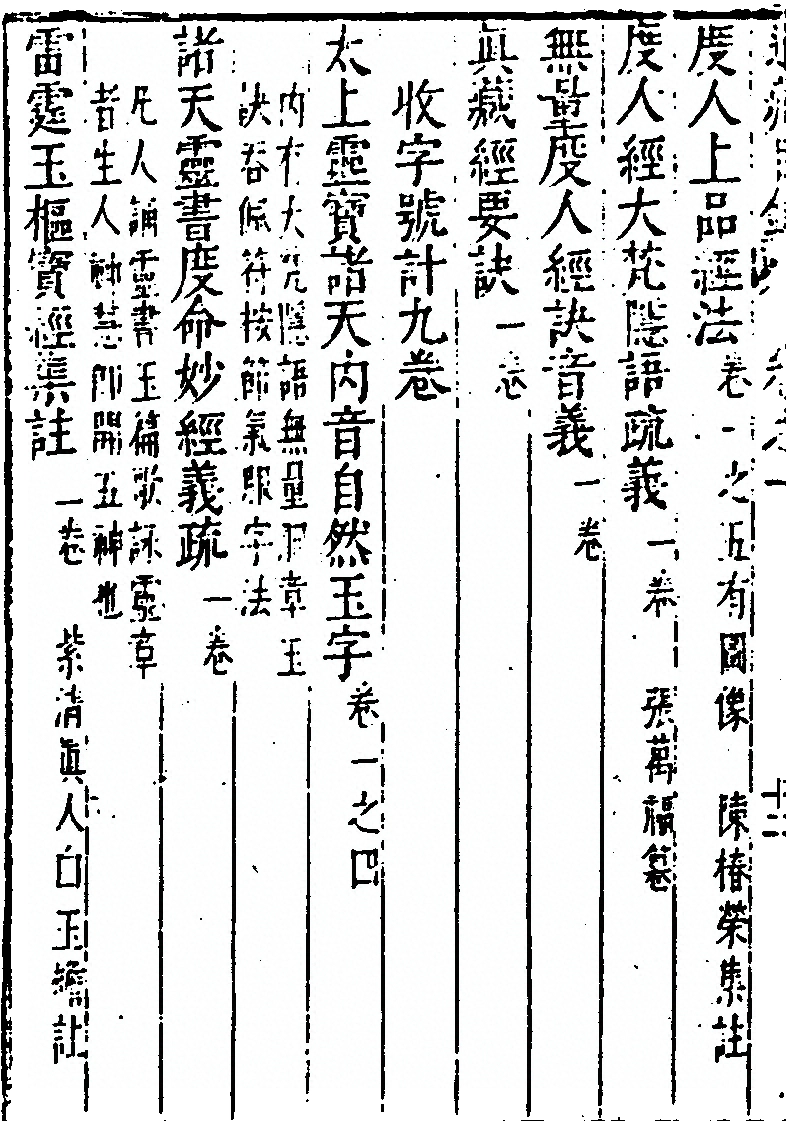 度人上品經法卷一之五有圖像　陳椿榮集註
度人經大梵隱語疏義一卷　張萬福纂
無量度人經訣音義一卷
眞藏經要訣一卷
收字號計九卷
太上靈寶諸天內音自然玉字卷一之四
內有大梵隱語無量洞章玉
訣吞佩符按節氣服字法
諸天靈書度命妙經義疏一卷
凡人誦靈書玉篇歌詠靈章
者生人神慧即開五神也
雷霆玉樞寶經集註一卷　紫清眞人白玉蟾註